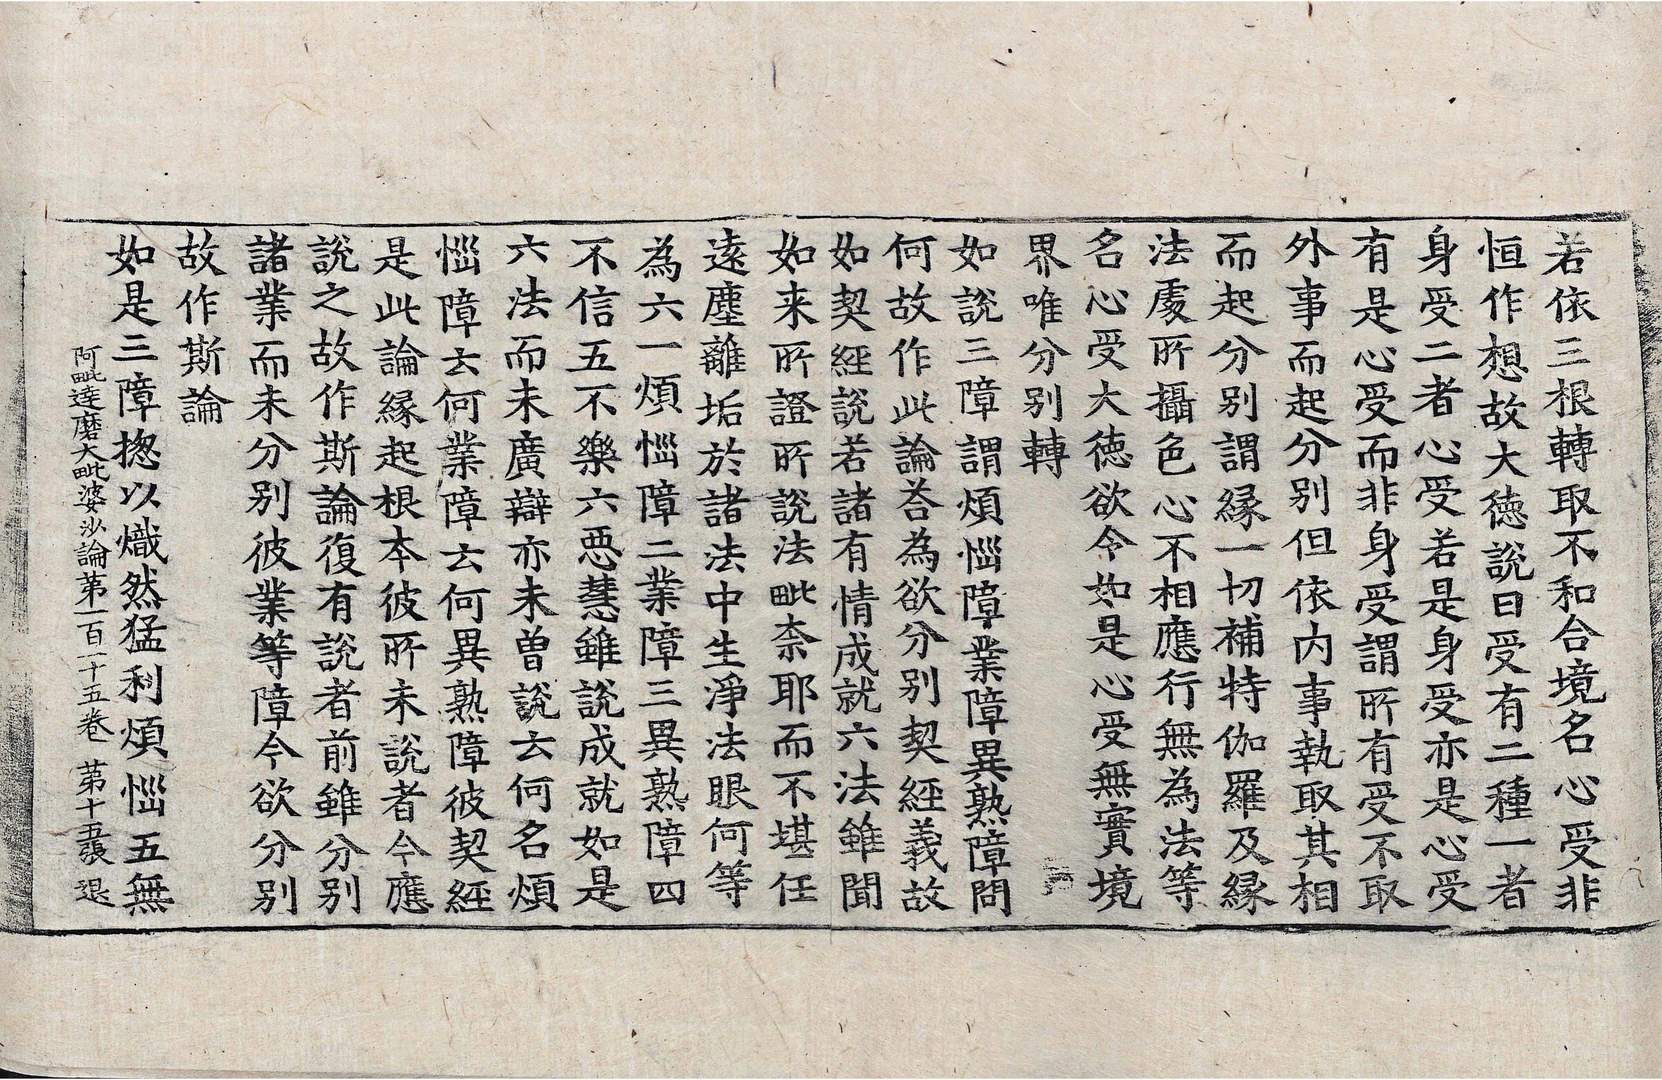 若依三根轉取不和合境名心受非
恒作想故大德說曰受有二種一者
身受二者心受若是身受亦是心受
有是心受而非身受謂所有受不取
外事而起分別但依內事執取其相
而起分別謂緣一切補特伽羅及緣
法處所攝色心不相應行無為法等
名心受大德欲令如是心受無實境
界唯分別轉
如說三障謂煩惱障業障異熟障問
何故作此論荅為欲分別契經義故
如契經說若諸有情成就六法雖聞
如来所證所說法毗奈耶而不堪任
遠塵離垢於諸法中生淨法眼何等
為六一煩惱障二業障三異熟障四
不信五不樂六惡慧雖說成就如是
六法而未廣辯亦未曾說云何名煩
惱障云何業障云何異熟障彼契經
是此論緣起根本彼所未說者今應
說之故作斯論復有說者前雖分別
諸業而未分別彼業等障今欲分別
故作斯論
如是三障揔以熾然猛利煩惱五無
阿毗達磨大毗婆沙論第一百一十五卷 第十五張 退